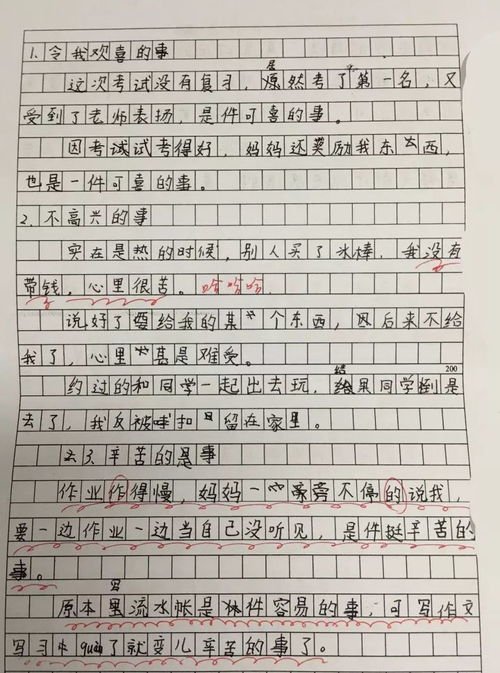 1.令我欢喜的事
这次考试没有复习,居然考了第一名,又
受到了老师表扬,是件可喜的事。
因考试试考得好,妈妈还奖励我东西,
也是一件可喜的事。
2.不高兴的事
实在是热的时候,别人买了冰棒,我没有
带钱,心里很苦。哈哈哈
说好了要给我的某个东西,因后来不给
我了,心里甚是难受。
约过的和同学一起出去玩,结果同学倒是
200
去了,我反被扣留在家里。
3.辛苦的事
作业作得慢,妈妈一旁不停的说我,
要一边作业一边当自己没听见,是件挺辛苦的
事。
原本写流水帐是件容易的事,可写作文
写习quan了就变儿辛苦的事了。